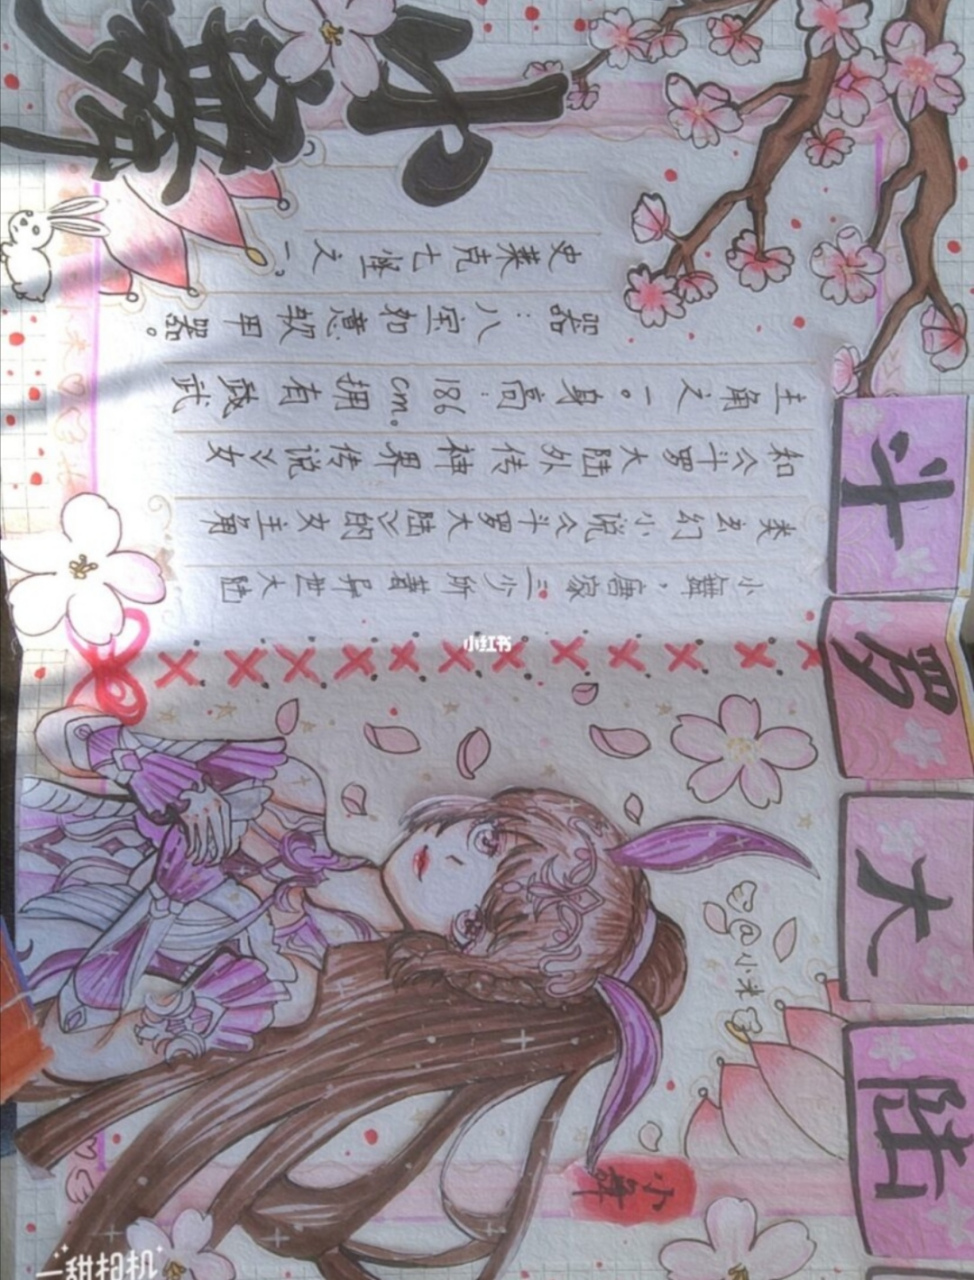 斗罗大陆
小舞，唐家三少所著异世大陆
类玄幻小说《斗罗大陆》的女主角
和《斗罗大陆外传神界传说》女
主角之一。身高：186cm。拥有武
器：八宝如意软甲器。
史莱克七怪之一，
小舞
@小米
小舞
小红书
一甜相机